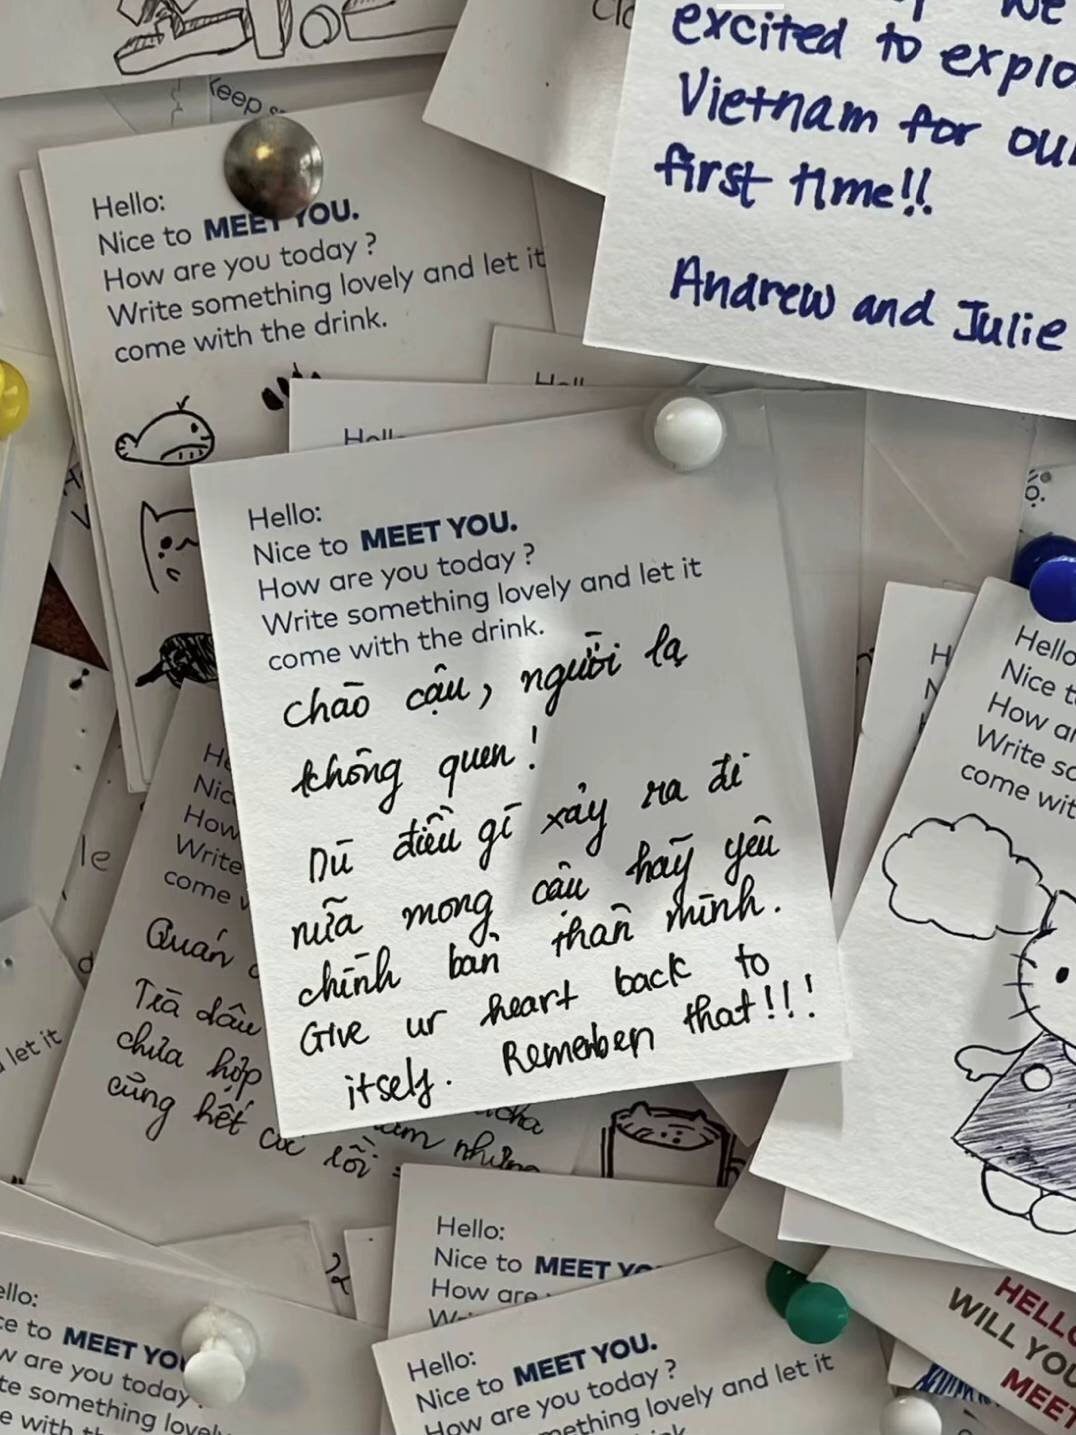 keep
excited to explo
Vietnam for our
first time!!
Andrew and Julie
Hello:
Nice to MEET YOU.
How are you today ?
Write something lovely and let it
come with the drink.
Hello:
Nice to MEET YOU.
How are you today ?
Write something lovely and let it
come with the drink.
chào cậu, người lạ
không quen!
Dù điều gì xảy ra đi
nữa mong cậu hãy yêu
chính bản thân mình.
Give ur heart back to
itself. Remember that!!!
He
Nic
How
Write
come
Quán
Trà dâu
chưa hợp
cũng hết cứu rồi
Hello
Nice t
How ar
Write so
come wit
let it
Hello:
Nice to MEET YO
How are
Hello:
Nice to MEET YOU.
How are you today ?
ething lovely and let it
ello:
ce to MEET YOU
w are you today
te something lovely
e with th
HELLO
WILL YOU
MEET